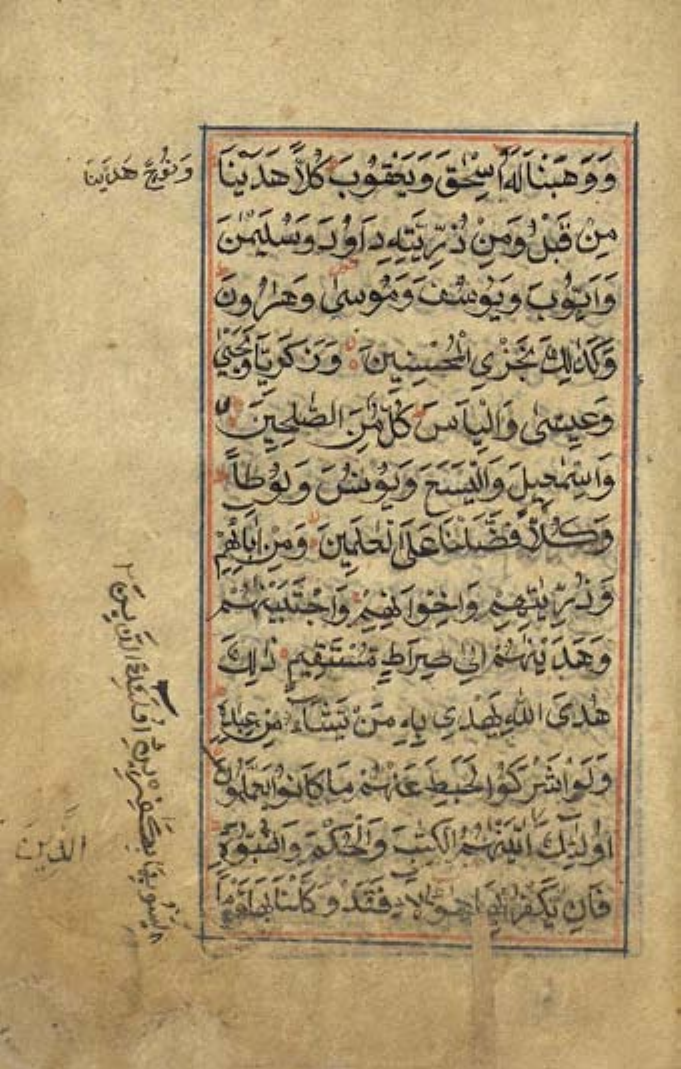 وَوَهَبْنَا لَهُ اِسْحٰقَ وَيَعْقُوبَ كُلًّا هَدَيْنَا
وَنُوحًا هَدَيْنَا
مِنْ قَبْلُ وَمِنْ ذُرِّيَّتِهِ دَاوُدَ وَسُلَيْمٰنَ
وَاَيُّوبَ وَيُوسُفَ وَمُوسٰى وَهٰرُونَ
وَكَذٰلِكَ نَجْزِى الْمُحْسِنِينَ وَزَكَرِيَّا وَيَحْيٰى
وَعِيسٰى وَاِلْيَاسَ كُلٌّ مِّنَ الصّٰلِحِينَ
وَاِسْمٰعِيلَ وَالْيَسَعَ وَيُونُسَ وَلُوطًا
وَكُلًّا فَضَّلْنَا عَلَى الْعٰلَمِينَ وَمِنْ اٰبَائِهِمْ
وَذُرِّيّٰتِهِمْ وَاِخْوَانِهِمْ وَاجْتَبَيْنٰهُمْ
وَهَدَيْنٰهُمْ اِلٰى صِرَاطٍ مُّسْتَقِيمٍ ذٰلِكَ
هُدَى اللّٰهِ يَهْدِى بِهِ مَنْ يَّشَآءُ مِنْ عِبَادِهِ
وَلَوْ اَشْرَكُوْا لَحَبِطَ عَنْهُمْ مَا كَانُوْا يَعْمَلُونَ
اُولٰئِكَ الَّذِينَ اٰتَيْنٰهُمُ الْكِتٰبَ وَالْحُكْمَ وَالنُّبُوَّةَ
فَاِنْ يَّكْفُرْ بِهَا هٰؤُلَآءِ فَقَدْ وَكَّلْنَا بِهَا قَوْمًا
لَيْسُوا بِهَا بِكٰفِرِينَ اُولٰئِكَ الَّذِينَ
الَّذِينَ